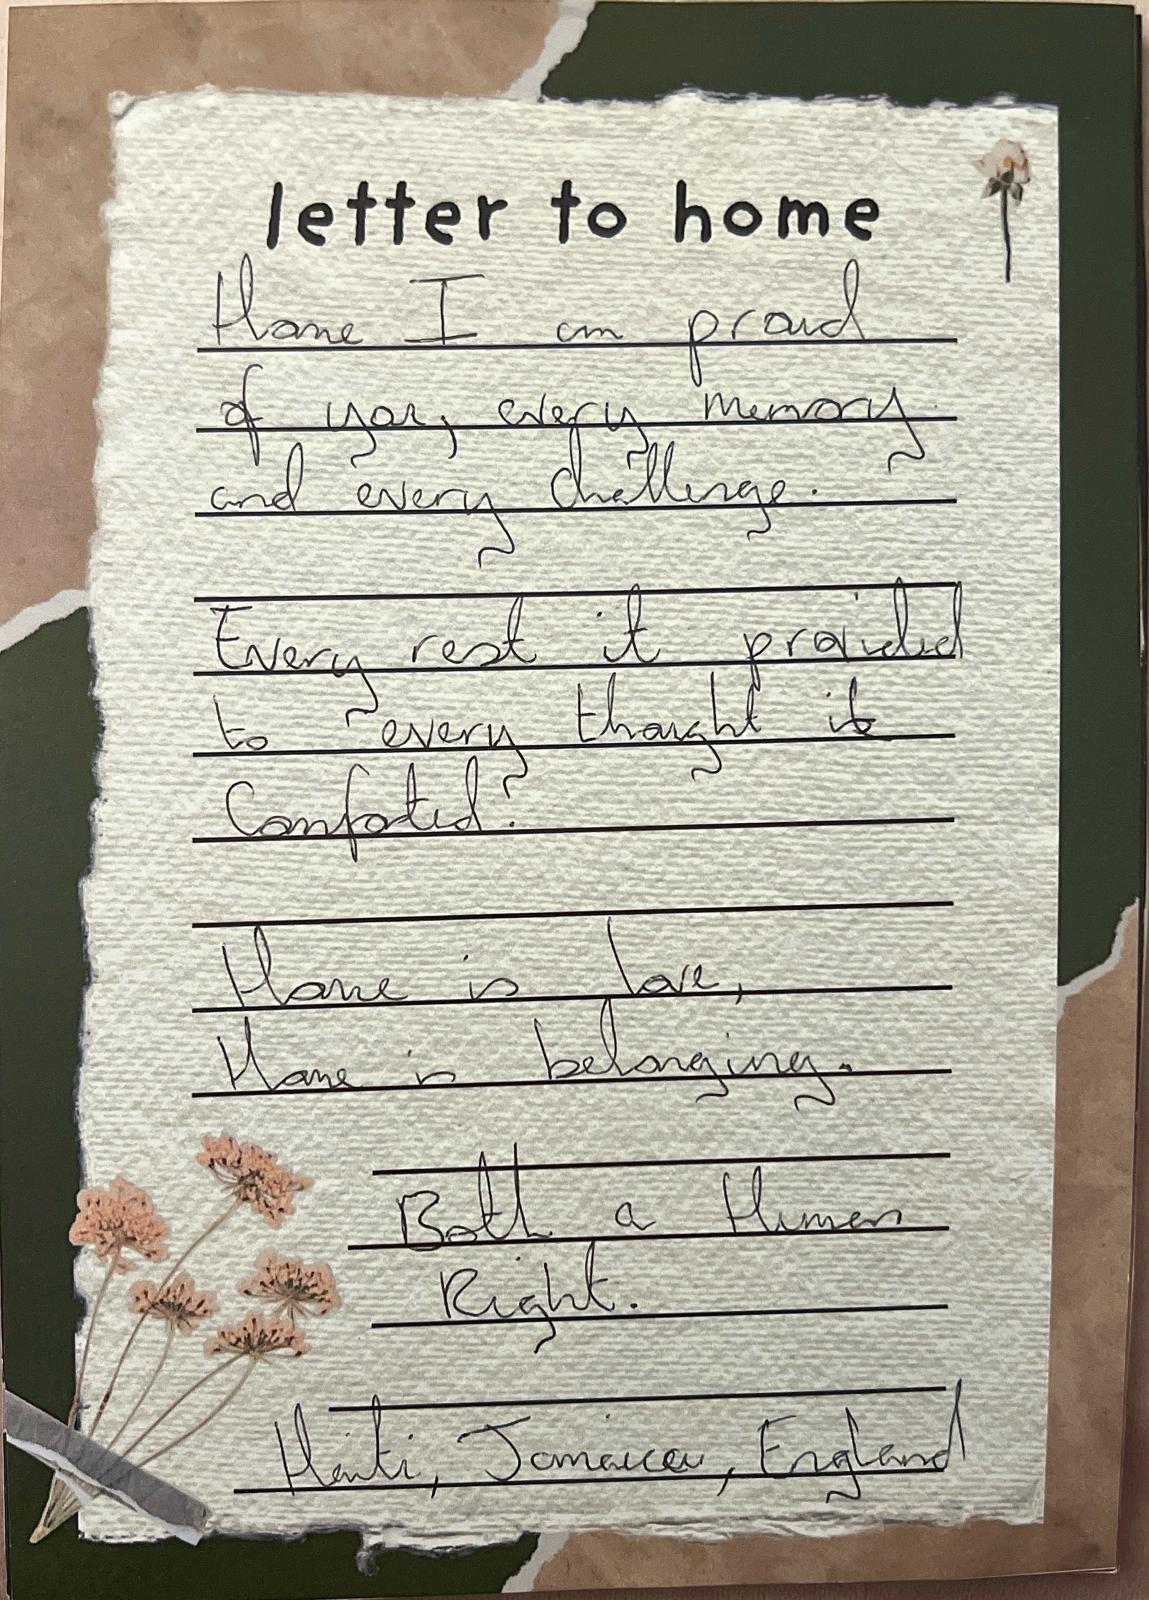 letter to home
Home I am proud
of you, every memory
and every challenge.
Every rest it provided
to every thought it
Comforted.
Home is love,
Home is belonging.
Both a Human
Right.
Haiti, Jamaica, England